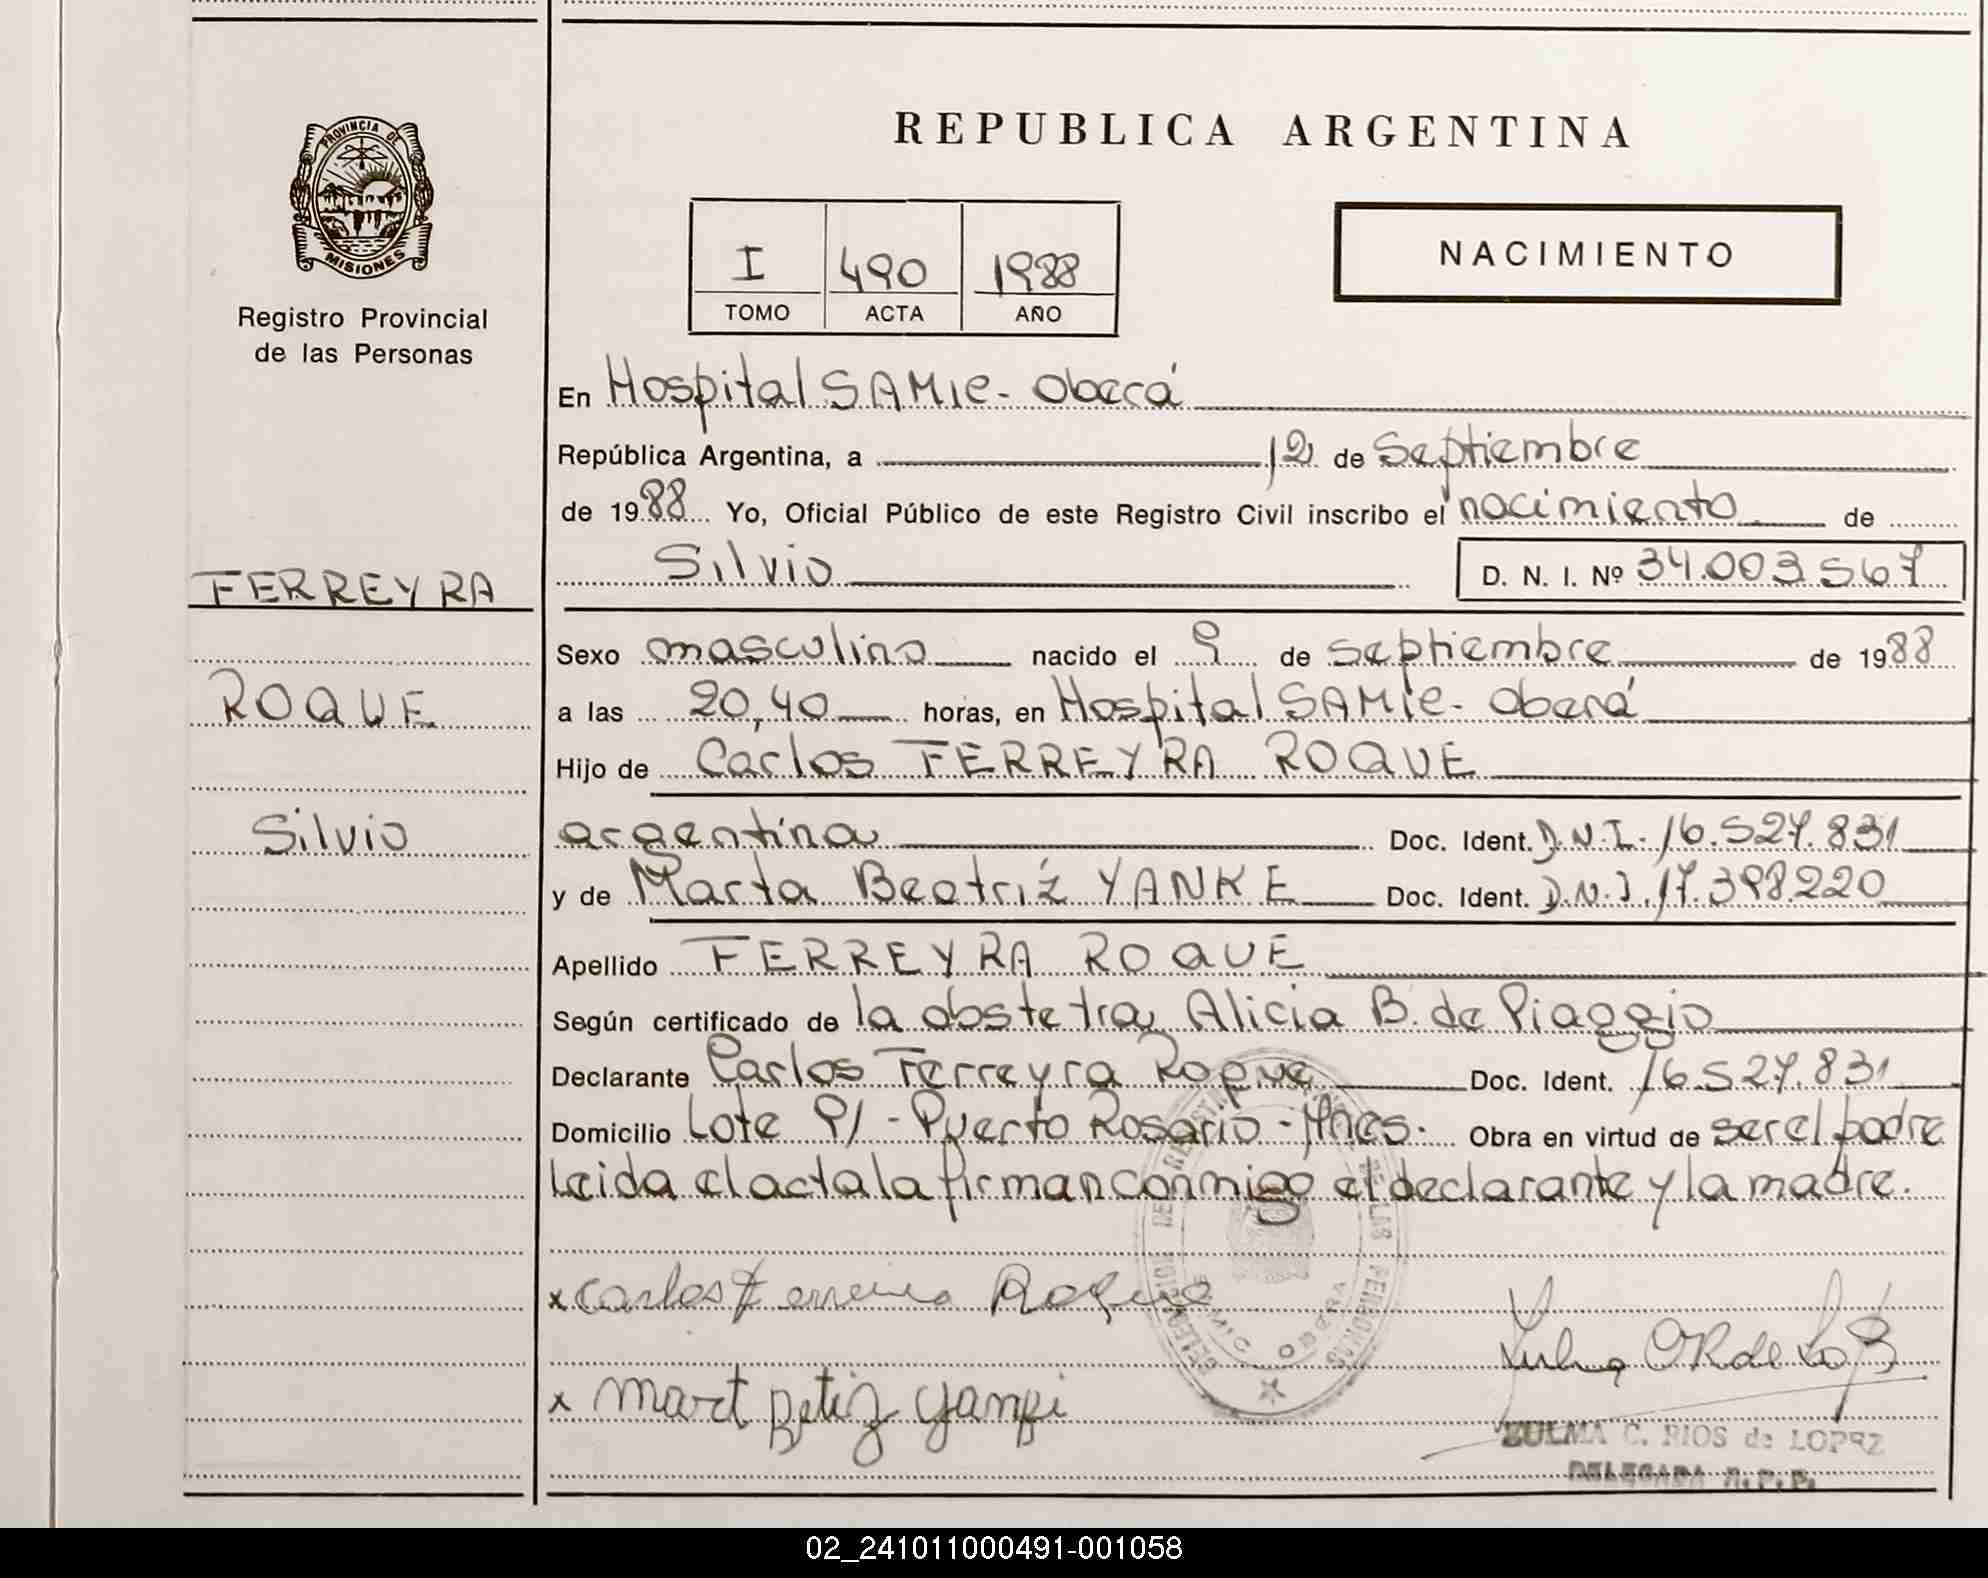 PROVINCIA DE
MISIONES
Registro Provincial
de las Personas
FERREYRA
ROQUE
Silvio
REPUBLICA ARGENTINA
I 490 1988
TOMO ACTA AÑO
NACIMIENTO
En Hospital SAMIc - Oberá
República Argentina, a 12 de Septiembre
de 1988 Yo, Oficial Público de este Registro Civil inscribo el nacimiento de
Silvio D. N. I. Nº 34.003.567
Sexo masculino nacido el 9 de septiembre de 1988
a las 20,40 horas, en Hospital SAMIc - Oberá
Hijo de Carlos FERREYRA ROQUE
argentina Doc. Ident. D.N.I. 16.527.831
y de Marta Beatríz YANKE Doc. Ident. D.N.I. 17.398.220
Apellido FERREYRA ROQUE
Según certificado de la obstetra, Alicia B. de Piaggio
Declarante Carlos Ferreyra Roque Doc. Ident. 16.527.831
Domicilio Lote 91 - Puerto Rosario - Mnes. Obra en virtud de ser el padre
Leida el acta la firman conmigo el declarante y la madre.
x Carlos Ferreira Roque
x mart betiz yanqi
DELEGACION DEL REGISTRO DE LAS PERSONAS
OBERA
ZULMA C. RIOS de LOPEZ
DELEGADA R.P.P.
02_241011000491-001058